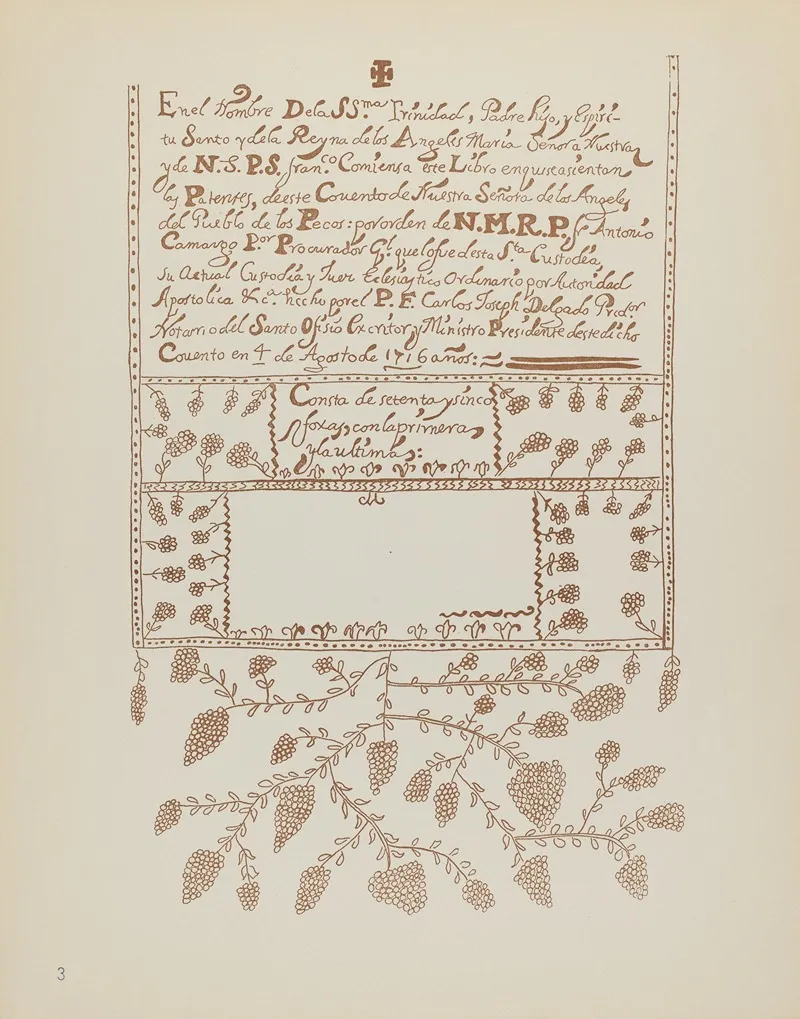 En el Nombre De la SS.ma Trinidad, Padre hijo, y Espiri-
tu Santo y dela Reyna de los Angeles Maria Señora Nuestra
y de N. S. P. S. fran.co Comiensa este Libro en quiscasientan
las Patentes, de este Couento de Nuestra Señora de los Angeles
del Pueblo de los Pecos: por orden de N. M. R. P. fr Antonio
Camargo P.or Procurador G.l que lo fue desta S.ta Custodia,
Su Actual Custodia y Juez Eclesiastico Ordinario por Autoridad
Apostolica &c.a hecho por el P. F. Carlos Joseph Delgado Pred.or
Notario del Santo Ofisio Escritor y Ministro Presidente deste dicho
Couento en 4 de Agosto de 1716 años:
Consta de setenta y sinco
foxas, con la primera,
y la ultima,:
3